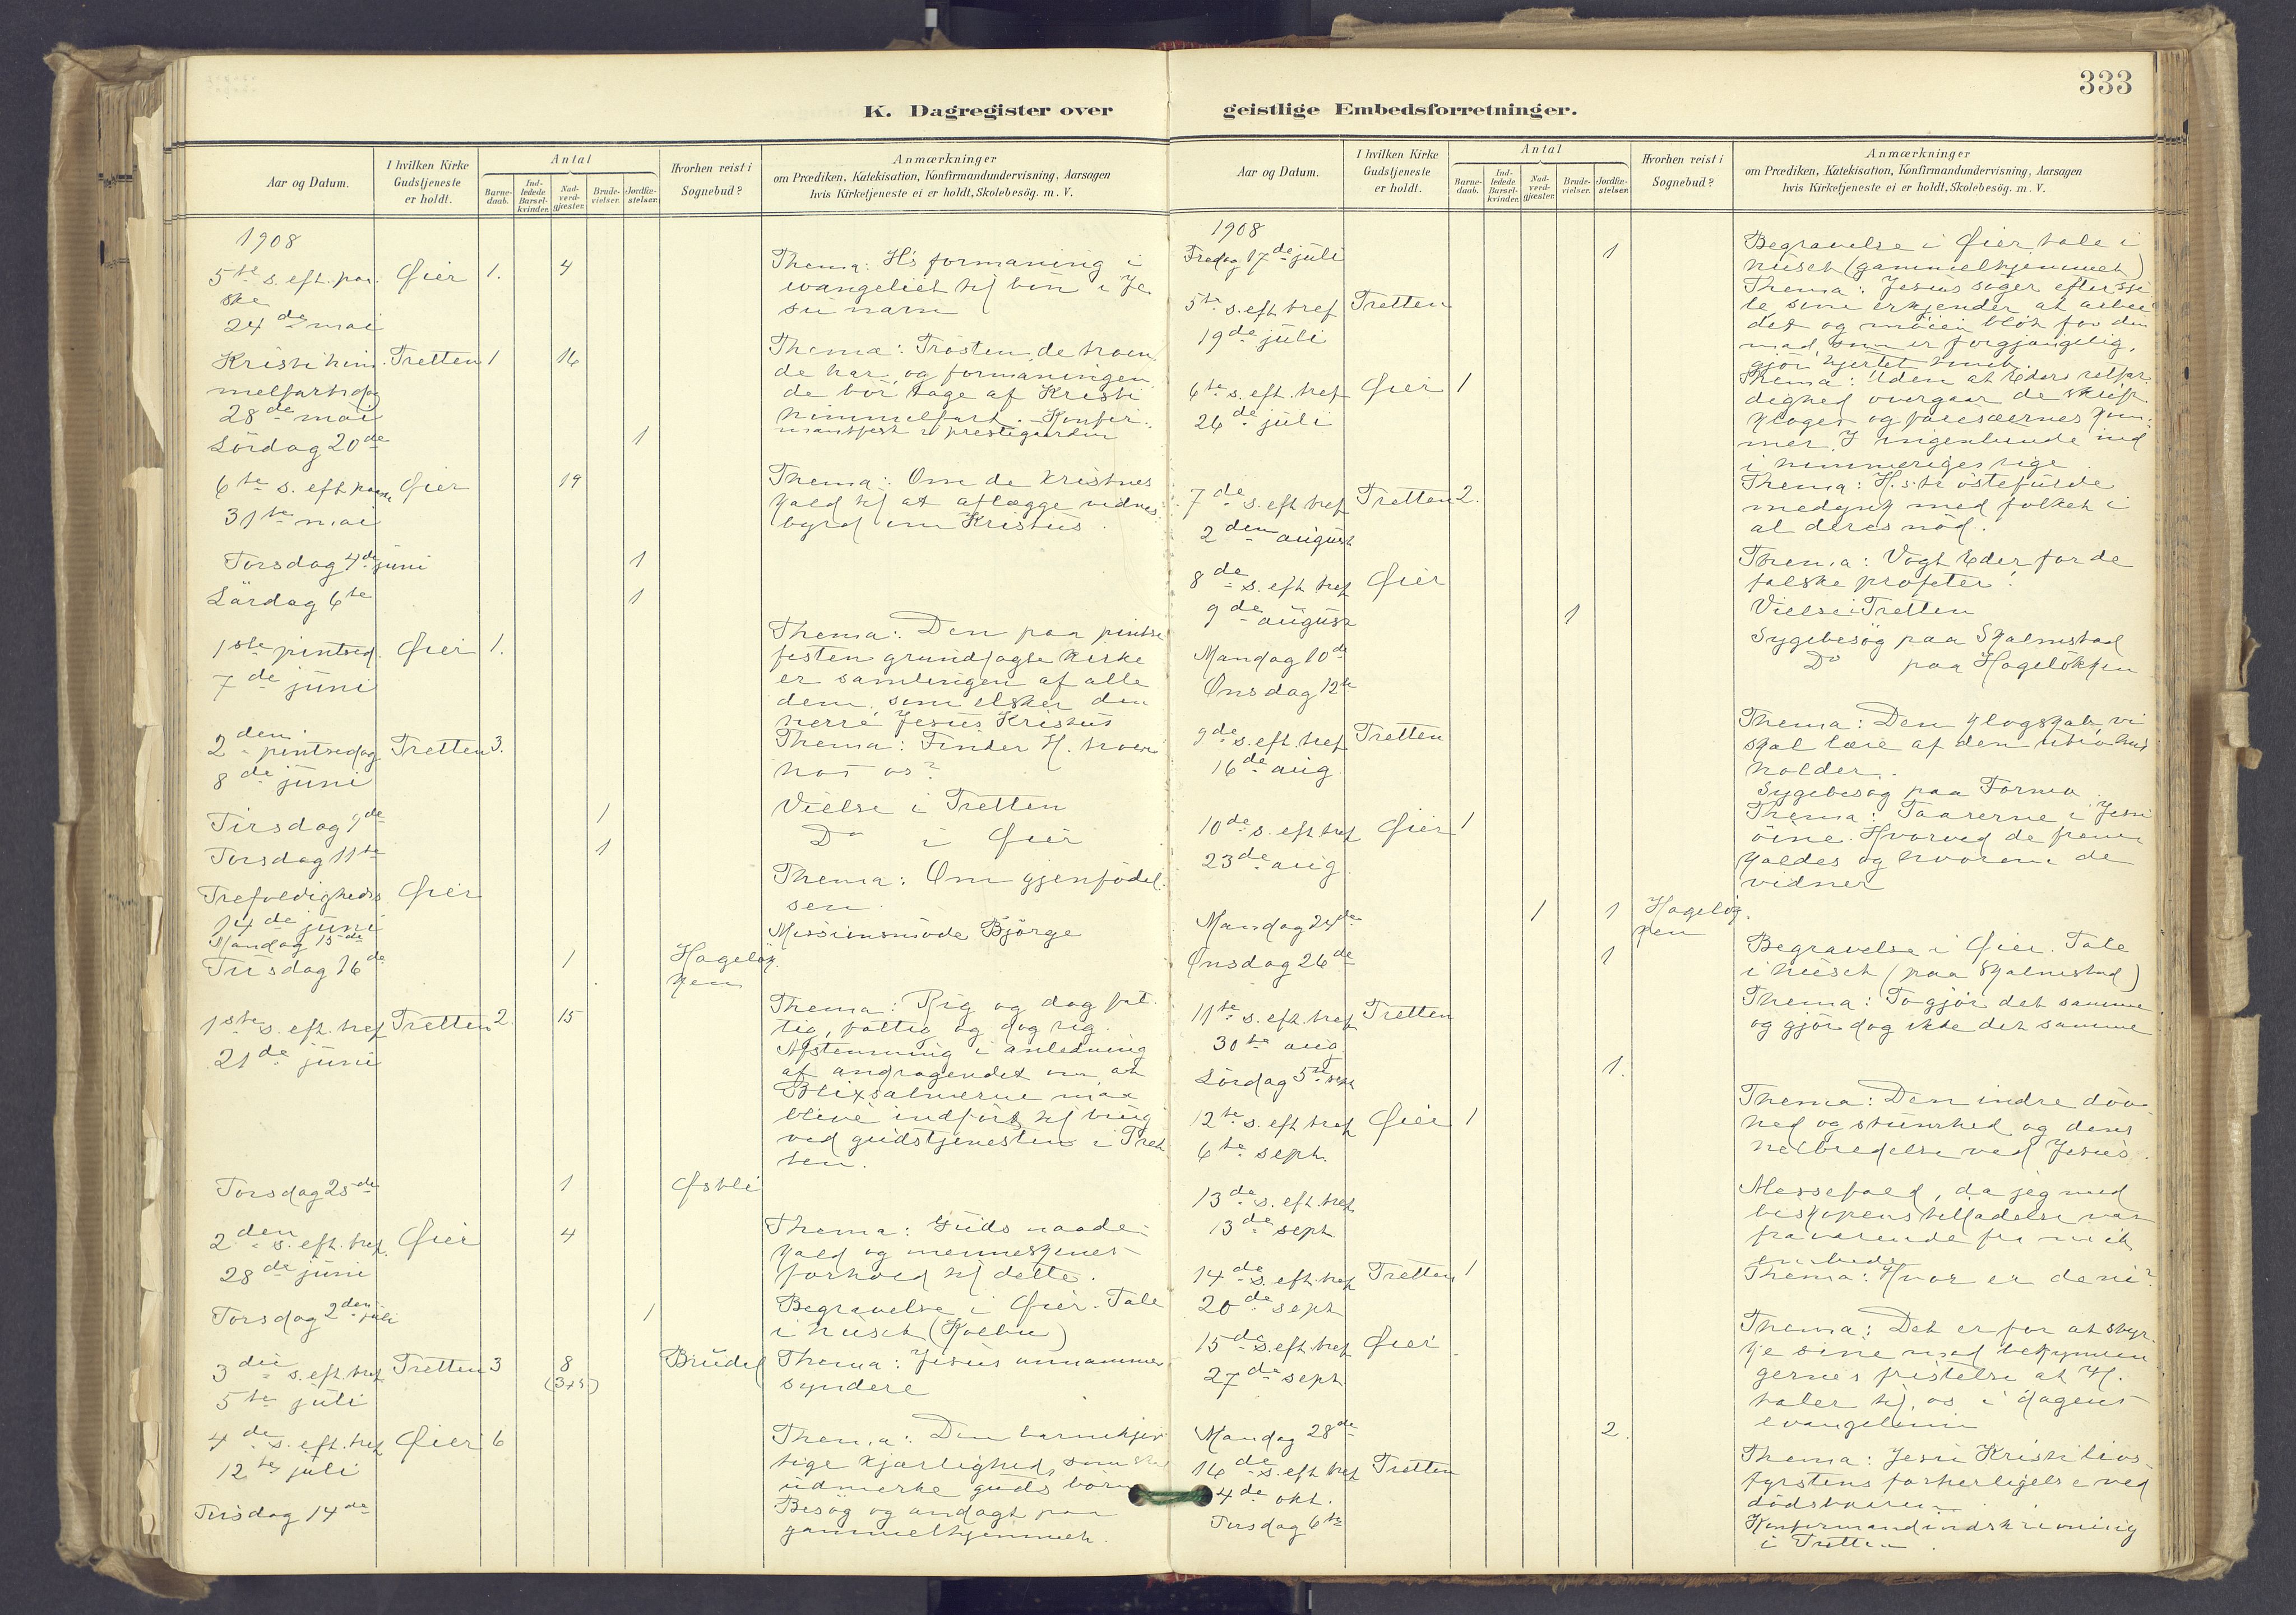 333
K. Dagregister over
geistlige Embedsforretninger.
Aar og Datum.
I hvilken Kirke
Gudstjeneste
er holdt.
Antal
Barne-
daab.
Ind-
ledede
Barsel-
kvinder.
Nad-
verd-
gjæster.
Brude-
vielser.
Jordfæ-
stelser.
Hvorhen reist i
Sognebud?
Anmærkninger
om Prædiken, Katekisation, Konfirmandundervisning, Aarsagen
hvis Kirketjeneste ei er holdt, Skolebesög. m. V.
1908
5te s. eft. paa
ske
24de mai
Øier 1. 4
Thema: H's formaning i
evangeliet til bön i Je
su navn
Kristi him
melfartsdag
28de mai
Tretten 1 16
Thema: Trösten, de troen
de har, og formaningen
de bör tage af Kristi
himmelfart. - Konfir
mantfest i prestegaarden
Lördag 20de 1
6te s. eft paaske Øier 19
31te mai
Thema: Om de kristnes
kald til at aflægge vidnes
byrd om Kristus.
Torsdag 4de juni 1
Lördag 6te 1
1ste pintsed. Øier 1.
7de juni
Thema: Den paa pintse
festen grundlagte kirke
er samlingen af alle
dem, som elsker den
herre Jesus Kristus
2den pintsedag Tretten 3.
8de juni
Thema: Finder H. troen
hos os?
Tirsdag 9de 1 Vielse i Tretten
Torsdag 11te 1 Do i Øier
Trefoldigheds Øier
14de juni
Thema: Om gjenfödel
sen.
Mandag 15de Missionsmöde Björge
Tirsdag 16de 1 Hagelök
ken
1ste s. eft. tref Tretten 2. 15
21de juni
Thema: Rig og dog fat
tig, fattig og dog rig.
Afstemning i anledning
af andragendet om at
Blixsalmerne maa
blive indfört til brug
ved gudstjenesten i Tret
ten.
Torsdag 25de 1 Østli
2den s. eft. tref. Øier 4
28de juni
Thema: Guds naade
kald og menneskenes
forhold til dette.
Torsdag 2den juli 1
Begravelse i Øier. Tale
i huset (Kolbu)
3die s. eft. tref Tretten 3 8 Brudel
(3+5)
5te juli
Thema: Jesus annammer
syndere
4de s. eft. tref Øier 6
12te juli
Thema: Den barmhjer
tige kjærlighed, som skal
udmerke guds börn
Tirsdag 14de
Besög og andagt paa
gammelhjemmet.
Aar og Datum.
I hvilken Kirke
Gudstjeneste
er holdt.
Antal
Barne-
daab.
Ind-
ledede
Barsel-
kvinder.
Nad-
verd-
gjæster.
Brude-
vielser.
Jordfæ-
stelser.
Hvorhen reist i
Sognebud?
Anmærkninger
om Prædiken, Katekisation, Konfirmandundervisning, Aarsagen
hvis Kirketjeneste ei er holdt, Skolebesög. m. V.
1908
Fredag 17de juli 1
Begravelse i Øier tale i
huset (gammelhjemmet)
5te s. eft tref Tretten
19de juli
Thema: Jesus söger efter sje
le, som erkjender at arbei
det og möien blot for den
mad, som er forgjængelig,
gjör hjertet tomt.
6te s. eft. tref Øier 1
26de juli
Thema: Uden at Eders retfær
dighed overgaar de skrift
kloges og farisæernes kom
mer I ingenlunde ind
i himmeriges rige
7de s. eft tref Tretten 2.
2den august
Thema: H.s
medynk med folket i
al deres nöd.
8de s. eft tref Øier
9de august 1
Thema: Vogt Eder for de
falske profeter!
Vielse i Tretten
Mandag 10de Sygebesög paa Skalmstad
Onsdag 12te Do paa Hagelökken
9de s. eft. tref Tretten
16de aug
Thema: Den klogskab, vi
skal lære af den utro hus
holder.
Sygebesög paa Formo
10de s. eft tref Øier 1
23de aug
Thema: Taarerne i Jesu
öine. Hvorved de frem
kaldes og hvorom de
vidner
Mandag 24de 1 1 Hagelök
ken
Onsdag 26de 1
Begravelse i Øier. Tale
i huset (paa Skalmstad)
11te s. eft. tref Tretten
30te aug
Thema: To gjör det samme
og gjör dog ikke det samme
Lördag 5te sept 1.
12te s. eft tref Øier 1
6te sept.
Thema: Den indre döv
hed og stumhed og dens
helbredelse ved Jesus.
13de s. eft. tref
13de sept
Messefald, da jeg med
biskopens tilladelse var
fraværende fra mit
embede
14de s. eft. tref Tretten 1
20de sept
Thema: Hvor er de ni?
15de s. eft. tref Øier
27de sept
Thema: Det er for at styr
ke sine mod bekymrin
gernes fristelse at H.
taler til os i dagens
evangelium
Mandag 28de 2.
16de s. eft tref Tretten
4de okt.
Thema: Jesu Kristi livs
fyrstens forherligelse ved
dödsbaaren
Tirsdag 6te
Konfirmandindskrivning
i Tretten.